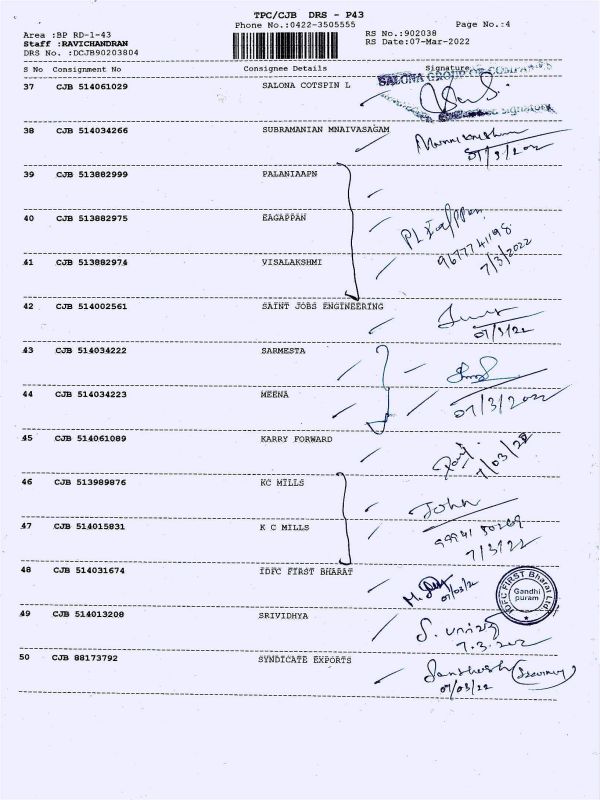 TPC/CJB DRS - P43
Phone No.:0422-3505555 Page No.:4
Area :BP RD-1-43 RS No.:902038
Staff :RAVICHANDRAN RS Date:07-Mar-2022
DRS No. :DCJB90203804
S No Consignment No Consignee Details Signature
37 CJB 514061029 SALONA COTSPIN L
SALONA GROUP OF COMPANIES
Signature
38 CJB 514034266 SUBRAMANIAN MNAIVASAGAM
07/3/2022
39 CJB 513882999 PALANIAAPN
40 CJB 513882975 EAGAPPAN
9677741198
7/3/2022
41 CJB 513882974 VISALAKSHMI
42 CJB 514002561 SAINT JOBS ENGINEERING
07/3/22
43 CJB 514034222 SARMESTA
44 CJB 514034223 MEENA
07/3/2022
45 CJB 514061089 KARRY FORWARD
7/03/22
46 CJB 513989876 KC MILLS
John
47 CJB 514015831 K C MILLS
99941 50269
7/3/22
48 CJB 514031674 IDFC FIRST BHARAT
07/03/22
IDFC FIRST Bharat Ltd
Gandhi
puram
49 CJB 514013208 SRIVIDHYA
7.3.202
50 CJB 88173792 SYNDICATE EXPORTS
Santhosh
07/03/22